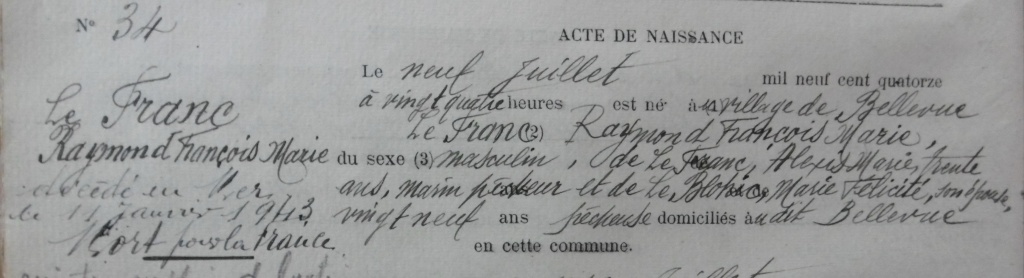 N° 34
ACTE DE NAISSANCE
Le neuf Juillet mil neuf cent quatorze
à vingt quatre heures est né au village de Bellevue
Le Franc (2) Raymond François Marie,
du sexe (3) masculin, de Le Franc, Alexis Marie, trente
ans, marin pêcheur et de Le Marie Félicité, son épouse,
vingt neuf ans pêcheuse domiciliés audit Bellevue
en cette commune.
Le Franc
Raymond François Marie
décédé en Mer
le 11 Janvier 1943
Mort pour la France
Juillet